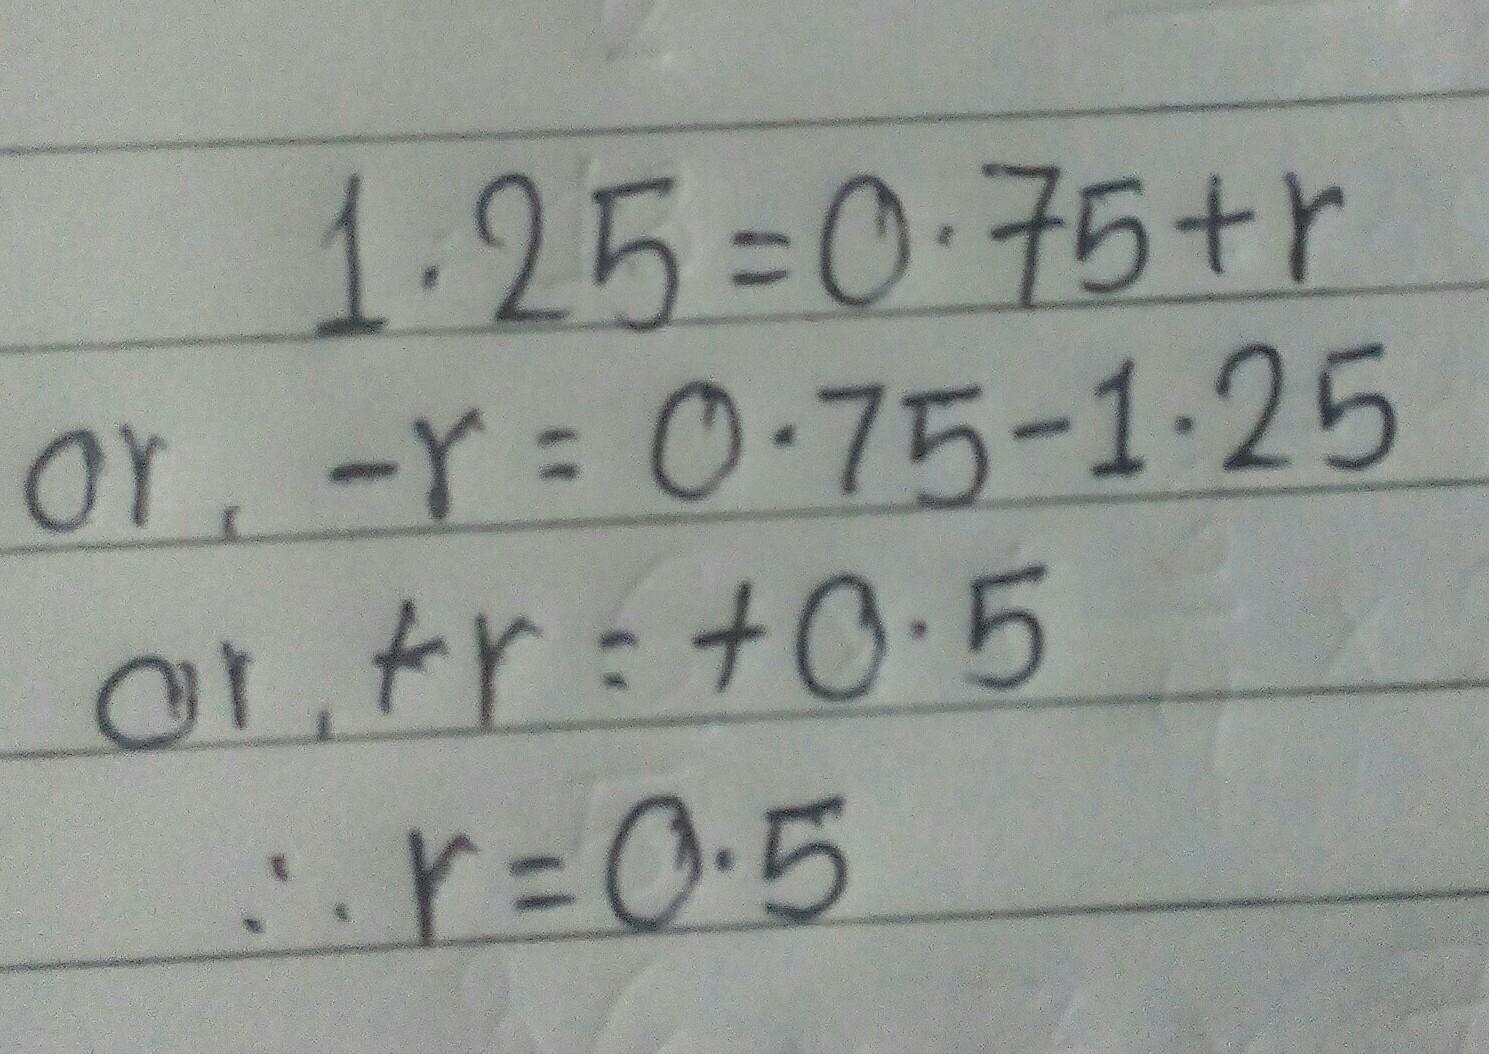 1.25=0.75+r
or, -r=0.75-1.25
or, +r=+0.5
∴ r=0.5